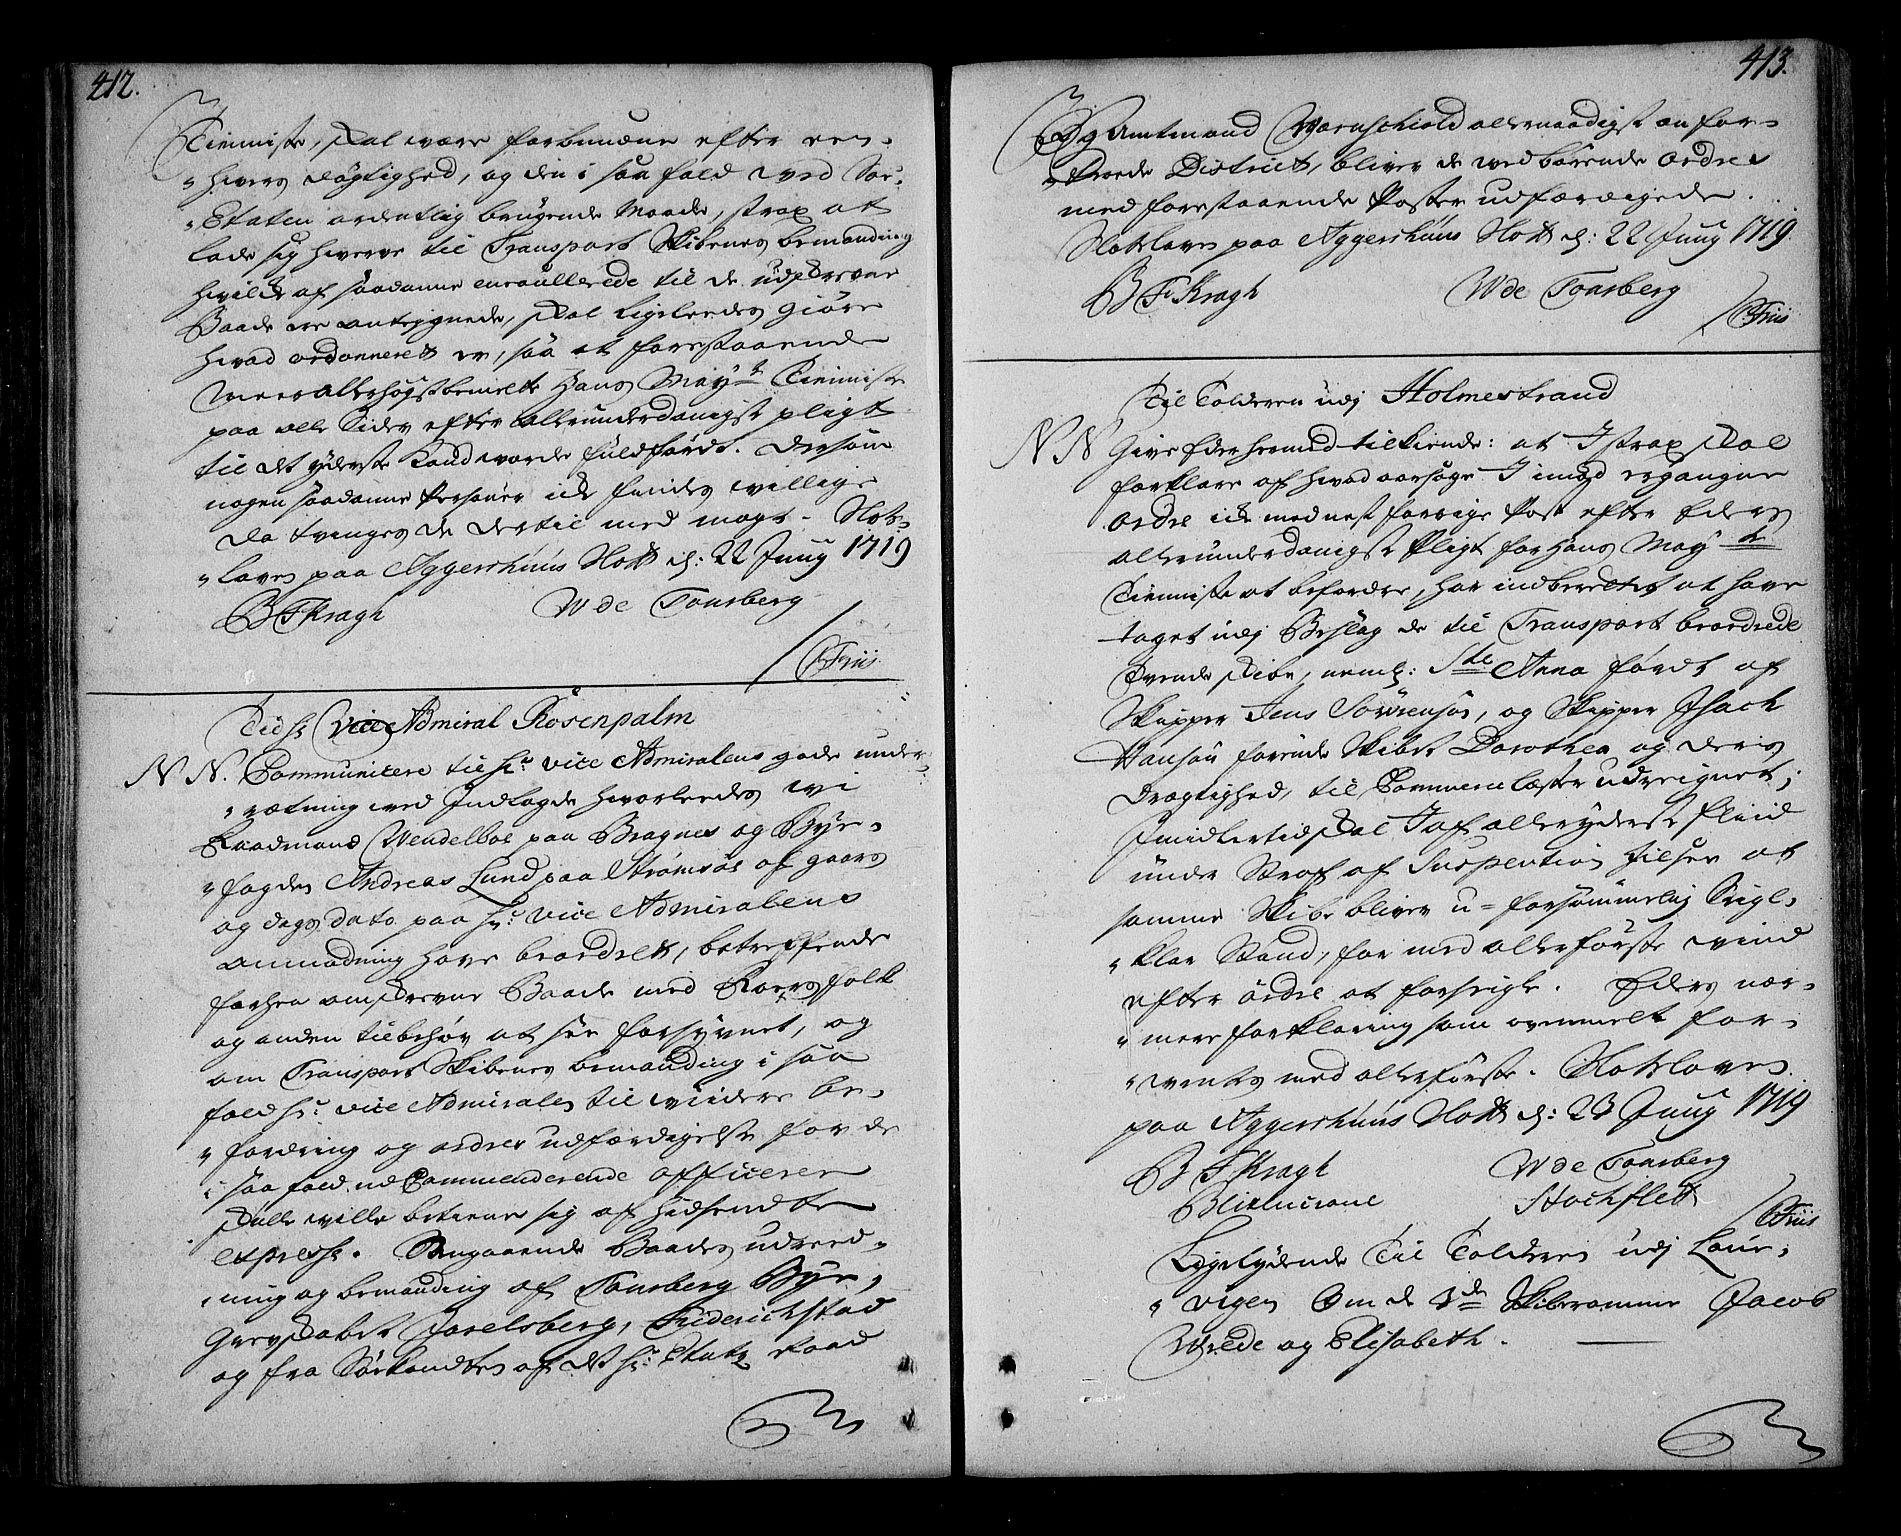 412.
Tienniste, skal være forbundne efter een-
"hvers dögtighed, og den i saa fald ved Söe-
"Etaten ordentlig brugende Maade, strax at
lade sig hverve til Transport Skibenes bemanding
hvilcke af saadanne enroullerede til de udskrevne
Baade ere antegnede, skal ligeleedes giöre
hvad ordonneret er, saa at forestaaende
meer allerhögstbemelte Hans Mayts Tienniste
paa alle Sider efter allerunderdanigst pligt
til det yderste kand worde fuldfördt. Dersom
nogen saadanne Personer icke findes willige
da tvinges de dertil med magt. Slots-
"loven paa Aggershuus Slott d: 22 Juny 1719
B F Kragh W de Tonsberg
CFriis
Til Hr Vice Admiral Rosenpalm
N N. Communicere til Hr: vice Admiralens gode under-
"rætning ved Indlagde hvorleedes wi
Raadmand Wendelboe paa Bragnes og Bye-
"fogden Andreas Lund paa Strømsöe af gaars
og dags dato paa Hr: vice Admiralens
anmodning have beordret, betreffende
forhen omskrevne Baade med Roersfolk
og anden tilbehör at före forsynet, og
om Transport Skibenes bemanding i saa
fald Hr: vice Admiralen til videre be-
"fordring og ordres udfærdigelse for de
i saa fald ud Commenderende officerer
skulle wille betiene sig af hidsendte
expresse. Angaaende Baades udreed-
"ning og bemanding af Tonsberg Bye,
Grevskabet Jarelsberg, Friderichstad
og fra Sörkandten af det Hr: Etatz Raad
413.
Og Amtmand Wernschiold allernaadigst an for-
"troede District, bliver de vedbörende ordres
med forestaaende Poster udfærdigede.
Slotsloven paa Aggershuus Slott d: 22 Juny 1719.
B F Kragh W de Tonsberg
CFriis
Til Tolderen udj Holmestrand
N N Give Eder hermed tilkiende: at I strax skal
forklare af hvad aarsage I imod ergangne
ordre icke med nest forrige Post efter Eders
allerunderdanigst Pligt for Hans Mayts
Tienniste at befordre, har indberettet at have
taget udj Beslag de til Transport beordrede
Tvende skibe, neml: Ste Anna fördt af
Skipper Jens Sörensön, og Skipper Isach
Hansön förende Skibet Dorothea og deris
Dragtighed, til Commerselæster udreignet;
Imidlertid skal I af alleryderste fliid
under Straf af Suspention tilsee at
samme Skibe bliver u-forsömmelig Seigl-
"klar Stand, for med allerförste wind
efter ordre at forseigle. Eders nær-
"mere forklaring som ovenmelt for-
"ventes med allerförste. Slotsloven
paa Aggershuus Slott d: 23 Juny 1719
B F Kragh W de Tonsberg
Blixencrone Stochflett
CFriis
Ligelydende Til Tolderen udj Laur-
"vigen Om de 2de Skibe ramme Jacob
Wrede og Elisabeth.